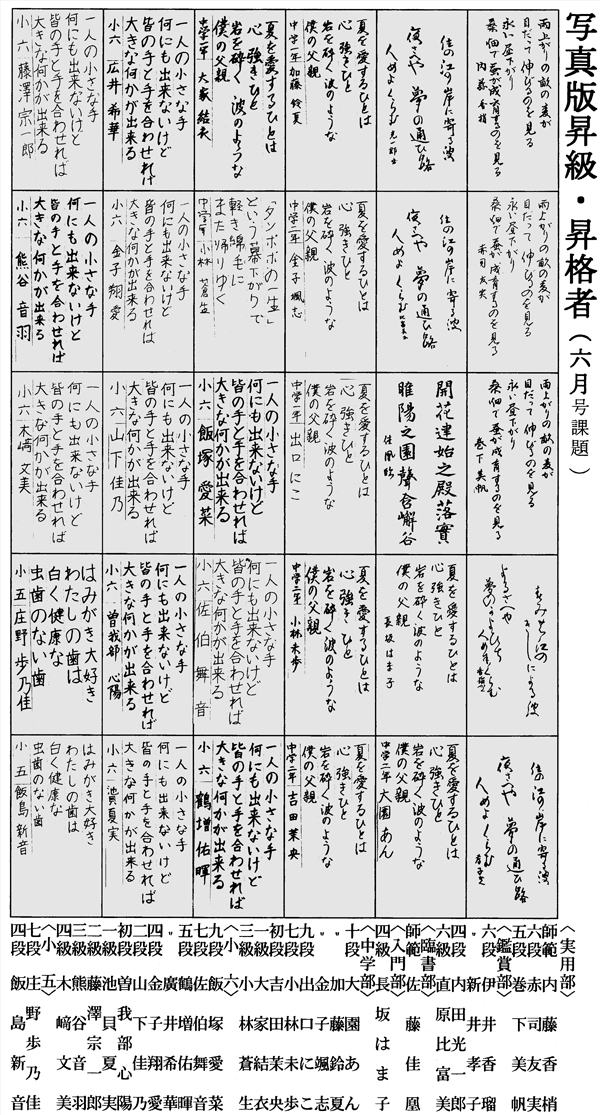 写真版昇級・昇格者（六月号課題）
雨上がりの畝の麦が
目だって伸びるのを見る
永い昼下がり
桑畑で蚕が成育するのを見る
内藤香梢
住の江の岸に寄る波
夜さへや 夢の通ひ路
人めよくらむ
夏を愛するひとは
心強きひと
岩を砕く波のような
僕の父親
中学一年 加藤鈴夏
夏を愛するひとは
心強きひと
岩を砕く波のような
僕の父親
中学二年 大家結衣
一人の小さな手
何にも出来ないけど
皆の手と手を合わせれば
大きな何かが出来る
小六 広井希華
一人の小さな手
何にも出来ないけど
皆の手と手を合わせれば
大きな何かが出来る
小六 藤澤宗一郎
雨上がりの畝の麦が
目だって伸びるのを見る
永い昼下がり
桑畑で蚕が成育するのを見る
赤司友実
住の江の岸に寄る波
夜さへや 夢の通ひ路
人めよくらむ
夏を愛するひとは
心強きひと
岩を砕く波のような
僕の父親
中学二年 金子颯志
「タンポポの一生」
という幕下がりで
軽き綿毛に
また帰りゆく
中学 小林蒼生
一人の小さな手
何にも出来ないけど
皆の手と手を合わせれば
大きな何かが出来る
小六 金子翔愛
一人の小さな手
何にも出来ないけど
皆の手と手を合わせれば
大きな何かが出来る
小六 熊谷音羽
雨上がりの畝の麦が
目だって伸びるのを見る
永い昼下がり
桑畑で蚕が成育するのを見る
巻下美帆
開花建始之殿落實
睢陽之園聲含嶰谷
佳凰臨
夏を愛するひとは
心強きひと
岩を砕く波のような
僕の父親
中学一年 出口にこ
一人の小さな手
何にも出来ないけど
皆の手と手を合わせれば
大きな何かが出来る
小六 飯塚愛菜
一人の小さな手
何にも出来ないけど
皆の手と手を合わせれば
大きな何かが出来る
小六 山下佳乃
一人の小さな手
何にも出来ないけど
皆の手と手を合わせれば
大きな何かが出来る
小六 木﨑文美
夏を愛するひとは
心強きひと
岩を砕く波のような
僕の父親
長坂はま子
夏を愛するひとは
心強きひと
岩を砕く波のような
僕の父親
中学二年 小林未歩
一人の小さな手
何にも出来ないけど
皆の手と手を合わせれば
大きな何かが出来る
小六 佐伯舞音
一人の小さな手
何にも出来ないけど
皆の手と手を合わせれば
大きな何かが出来る
小六 曽我部心陽
はみがき大好き
わたしの歯は
白く健康な
虫歯のない歯
小五 庄野歩乃佳
住の江の岸に寄る波
夜さへや 夢の通ひ路
人めよくらむ
夏を愛するひとは
心強きひと
岩を砕く波のような
僕の父親
中学二年 大園あん
夏を愛するひとは
心強きひと
岩を砕く波のような
僕の父親
中学二年 吉田茉央
一人の小さな手
何にも出来ないけど
皆の手と手を合わせれば
大きな何かが出来る
小六 鶴増佑暉
一人の小さな手
何にも出来ないけど
皆の手と手を合わせれば
大きな何かが出来る
小六 池貝夏実
はみがき大好き
わたしの歯は
白く健康な
虫歯のない歯
小五 飯島新音
〈実用部〉
師範 内藤香梢
六段 赤司友実
五段 巻下美帆
〈鑑賞部〉
六段 伊井香瑠
〃 新井孝子
四段 内田光一郎
六級 直原比富美
〈臨書部〉
師範 佐藤佳凰
〈入門部〉
四級 長坂はま子
〈中学部〉
十段 大園あん
〃 加藤鈴夏
〃 金子颯志
九段 出口にこ
八段 小林未歩
初段 吉田茉央
一級 大家結衣
三級 小林蒼生
〈小六〉
九段 飯塚愛菜
七段 佐伯舞音
五段 鶴増佑暉
〃 廣井希華
四段 金子翔愛
二段 山下佳乃
初段 曽我部心陽
一級 池貝夏実
二級 藤澤宗一郎
三級 熊谷音羽
四級 木﨑文美
〈小五〉
七段 庄野歩乃佳
四段 飯島新音